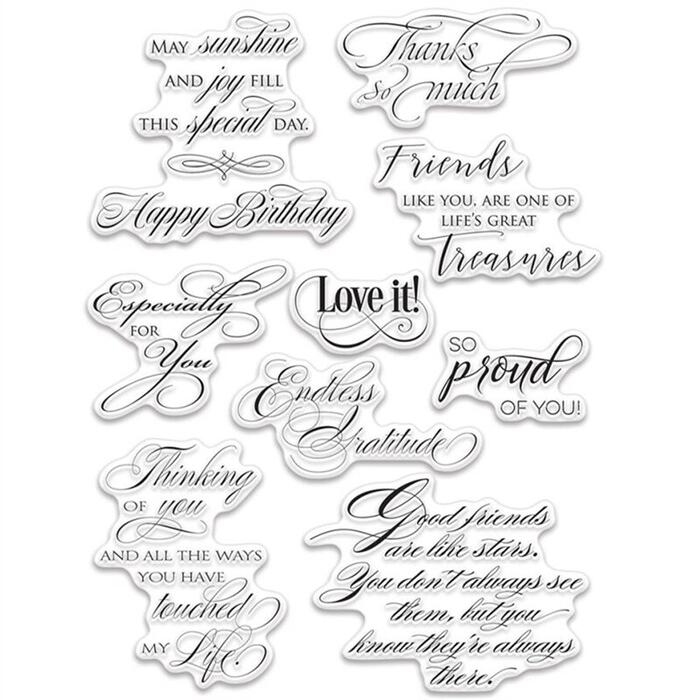 MAY sunshine
AND joy FILL
THIS special DAY.
Happy Birthday
Thanks
so much
Friends
LIKE YOU, ARE ONE OF
LIFE'S GREAT
Treasures
Especially
FOR
You
Love it!
SO
proud
OF YOU!
Endless
Gratitude
Thinking
OF you
AND ALL THE WAYS
YOU HAVE
touched
MY Life.
Good friends
are like stars.
You don't always see
them, but you
know they're always
there.